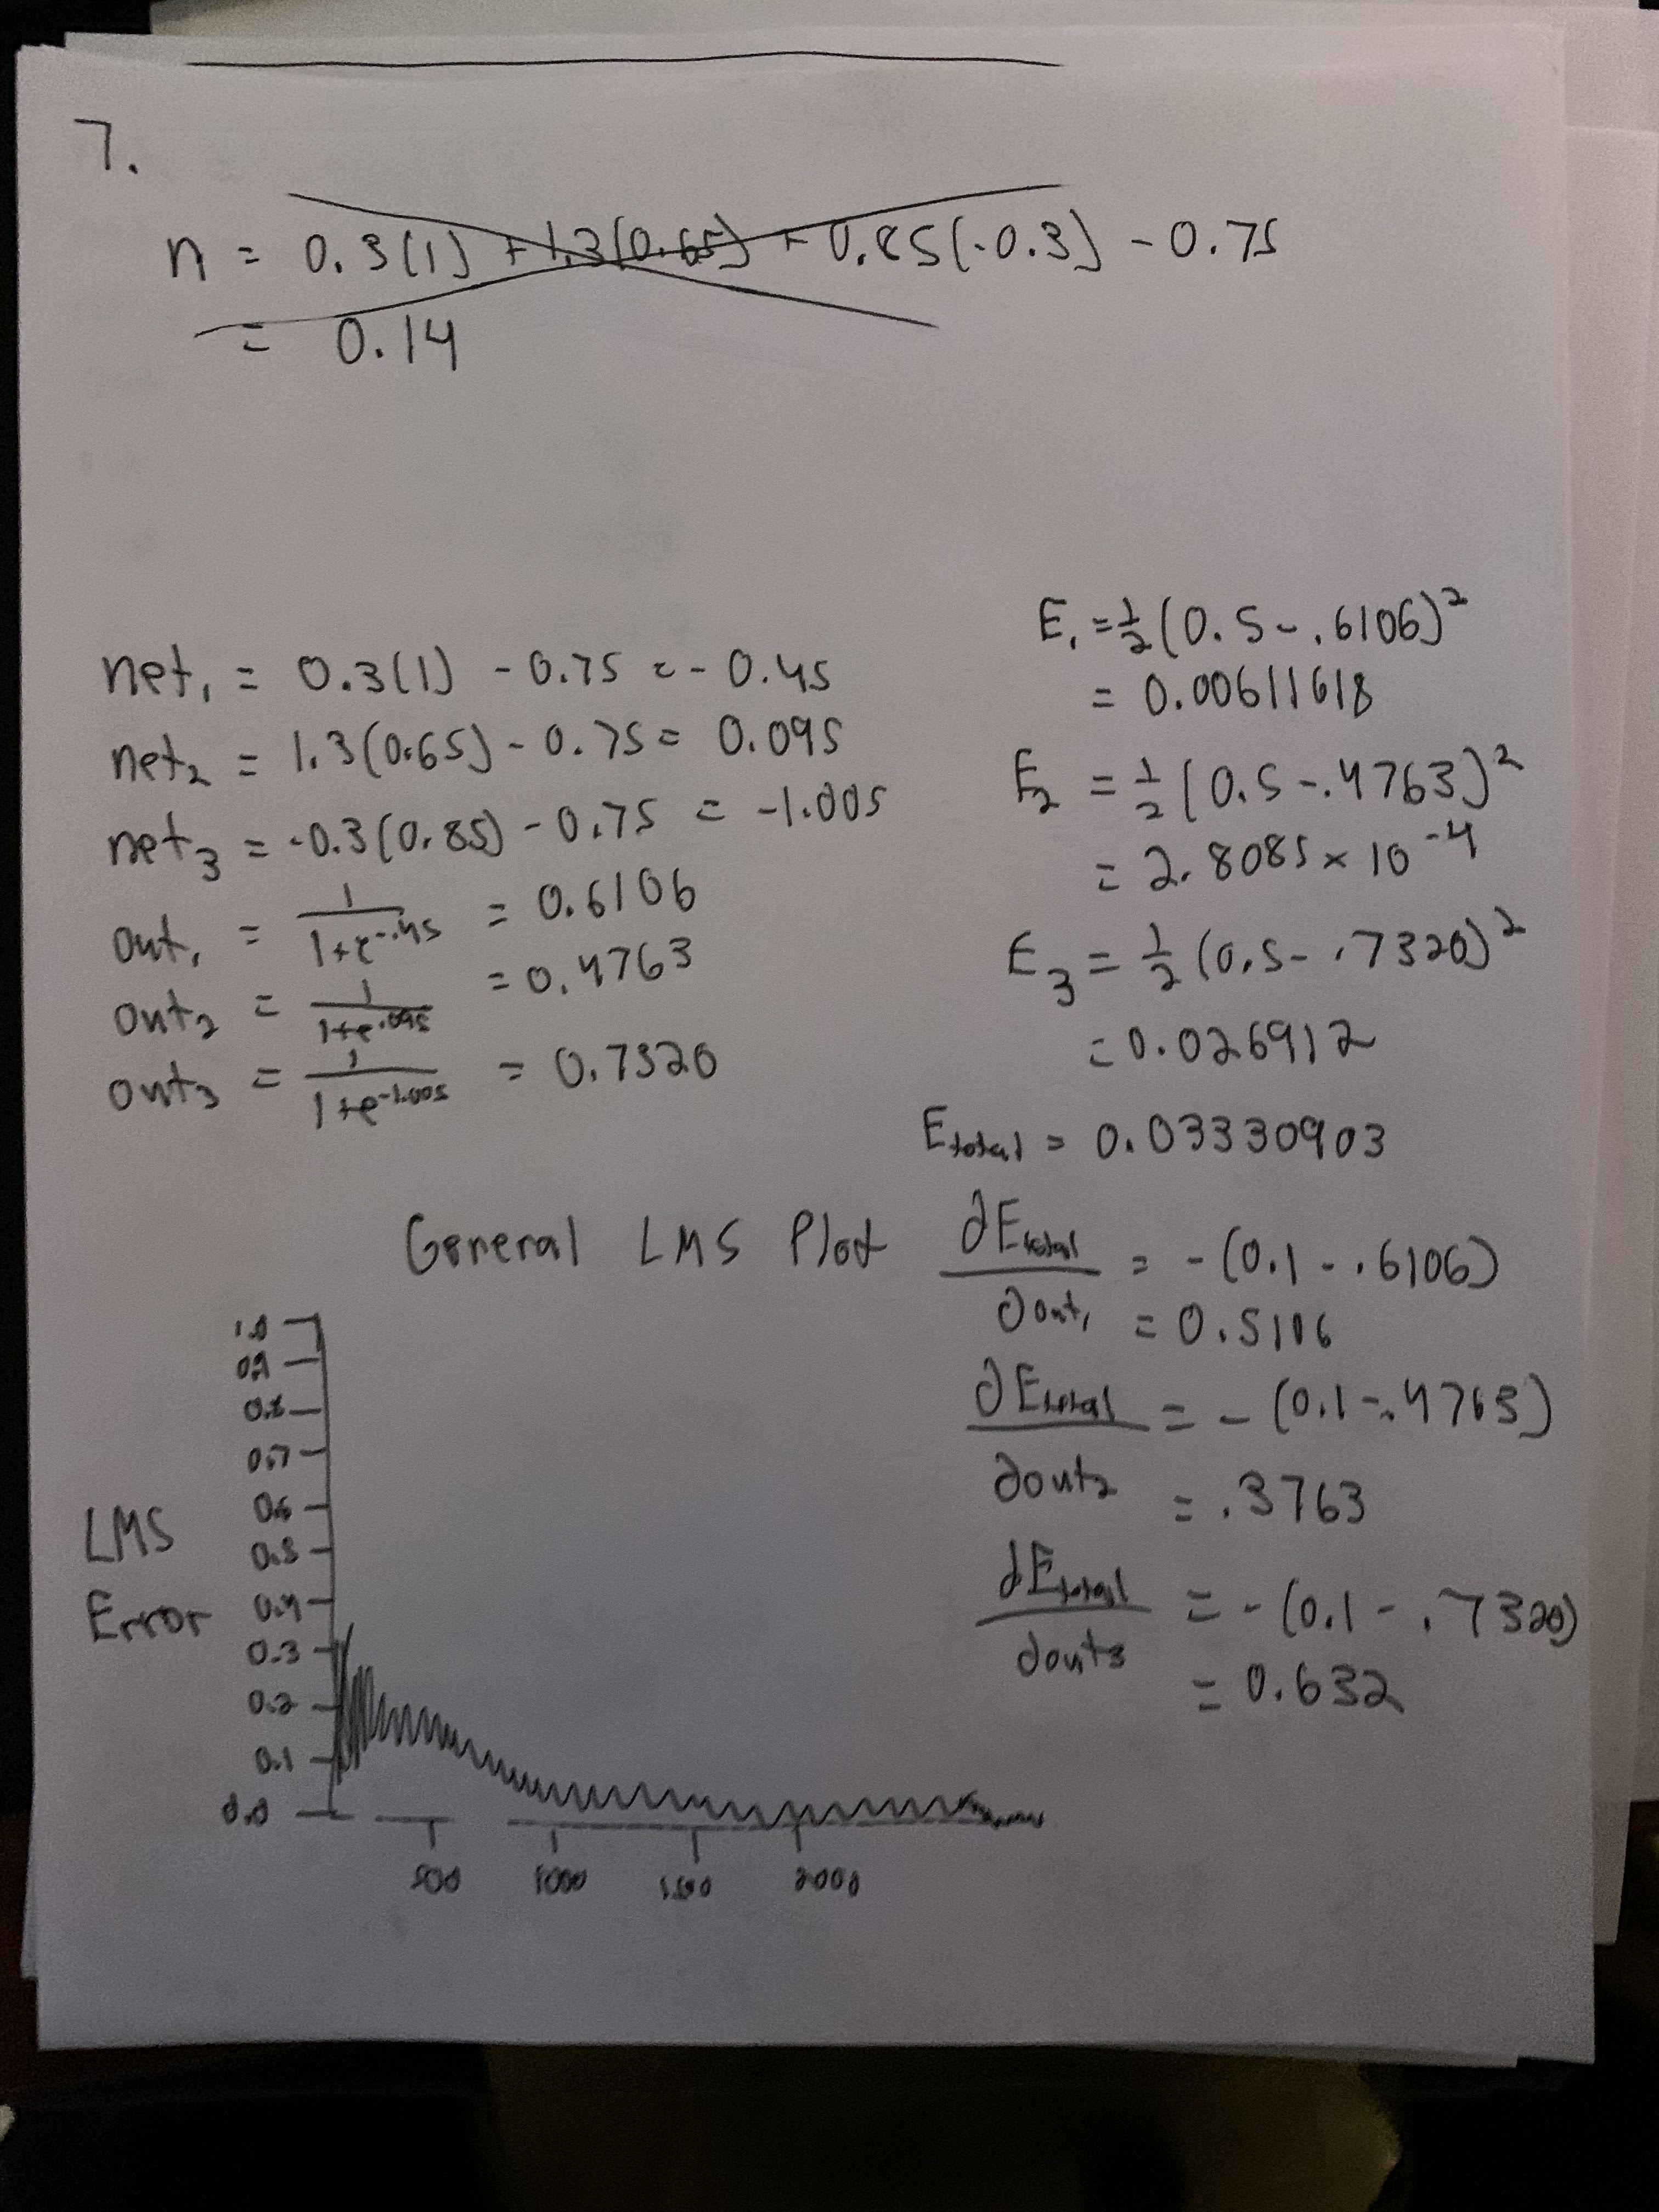 7.
n = 0.3(1) + 1.3(0.65) + 0.85(-0.3) - 0.75
= 0.14
net₁ = 0.3(1) - 0.75 = - 0.45
net₂ = 1.3(0.65) - 0.75 = 0.095
net₃ = -0.3(0.85) - 0.75 = -1.005
out₁ = 1/(1+e^-.45) = 0.6106
out₂ = 1/(1+e^.095) = 0.4763
out₃ = 1/(1+e^-1.005) = 0.7320
E₁ = ½(0.5 - .6106)²
= 0.00611618
E₂ = ½(0.5 - .4763)²
= 2.8085 × 10⁻⁴
E₃ = ½(0.5 - .7320)²
= 0.026912
E total = 0.03330903
∂E total/∂out₁ = -(0.1 - .6106)
= 0.5106
∂E total/∂out₂ = -(0.1 - .4763)
= .3763
∂E total/∂out₃ = -(0.1 - .7320)
= 0.632
General LMS Plot
LMS
Error
1.0
0.9
0.8
0.7
0.6
0.5
0.4
0.3
0.2
0.1
0.0
500 1000 1500 2000